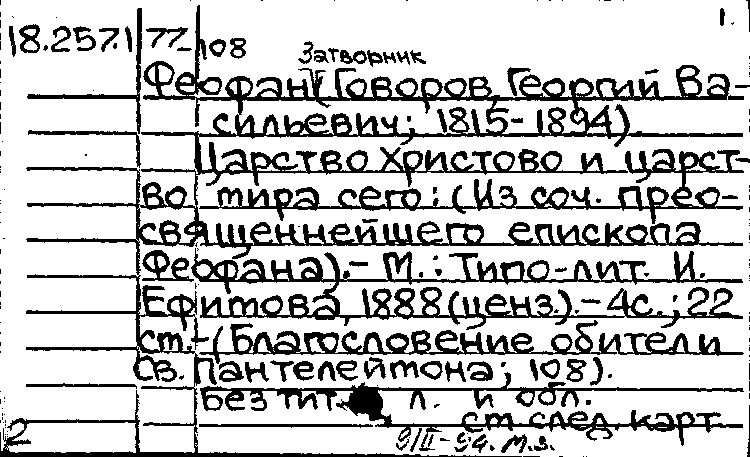 1.
18.257.1 77-108
Затворник
Феофан (Говоров, Георгий Ва-
сильевич; 1815-1894).
Царство Христово и царст-
во мира сего: (Из соч. прео-
священнейшего епископа
Феофана).- М.: Типо-лит. И.
Ефимова, 1888 (ценз.).- 4с.; 22
см.-(Благословение обители
Св. Пантелеймона; 108).
Без тит. л. и обл.
см след. карт.
2
9/II-94. м.з.